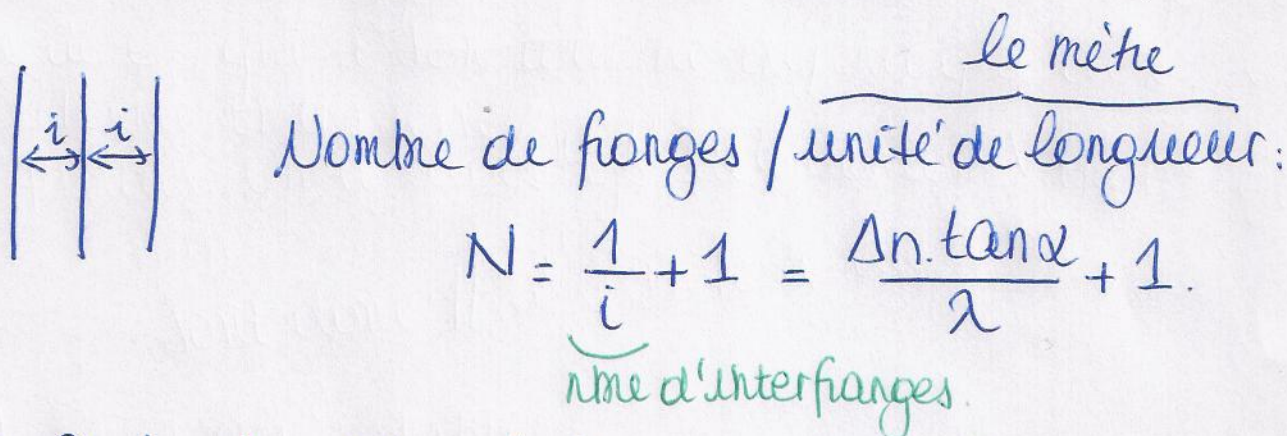 le mètre
i i
Nombre de franges / unité de longueur:
N = 1/i + 1 = Δn.tanα/λ + 1.
nbre d'interfranges.